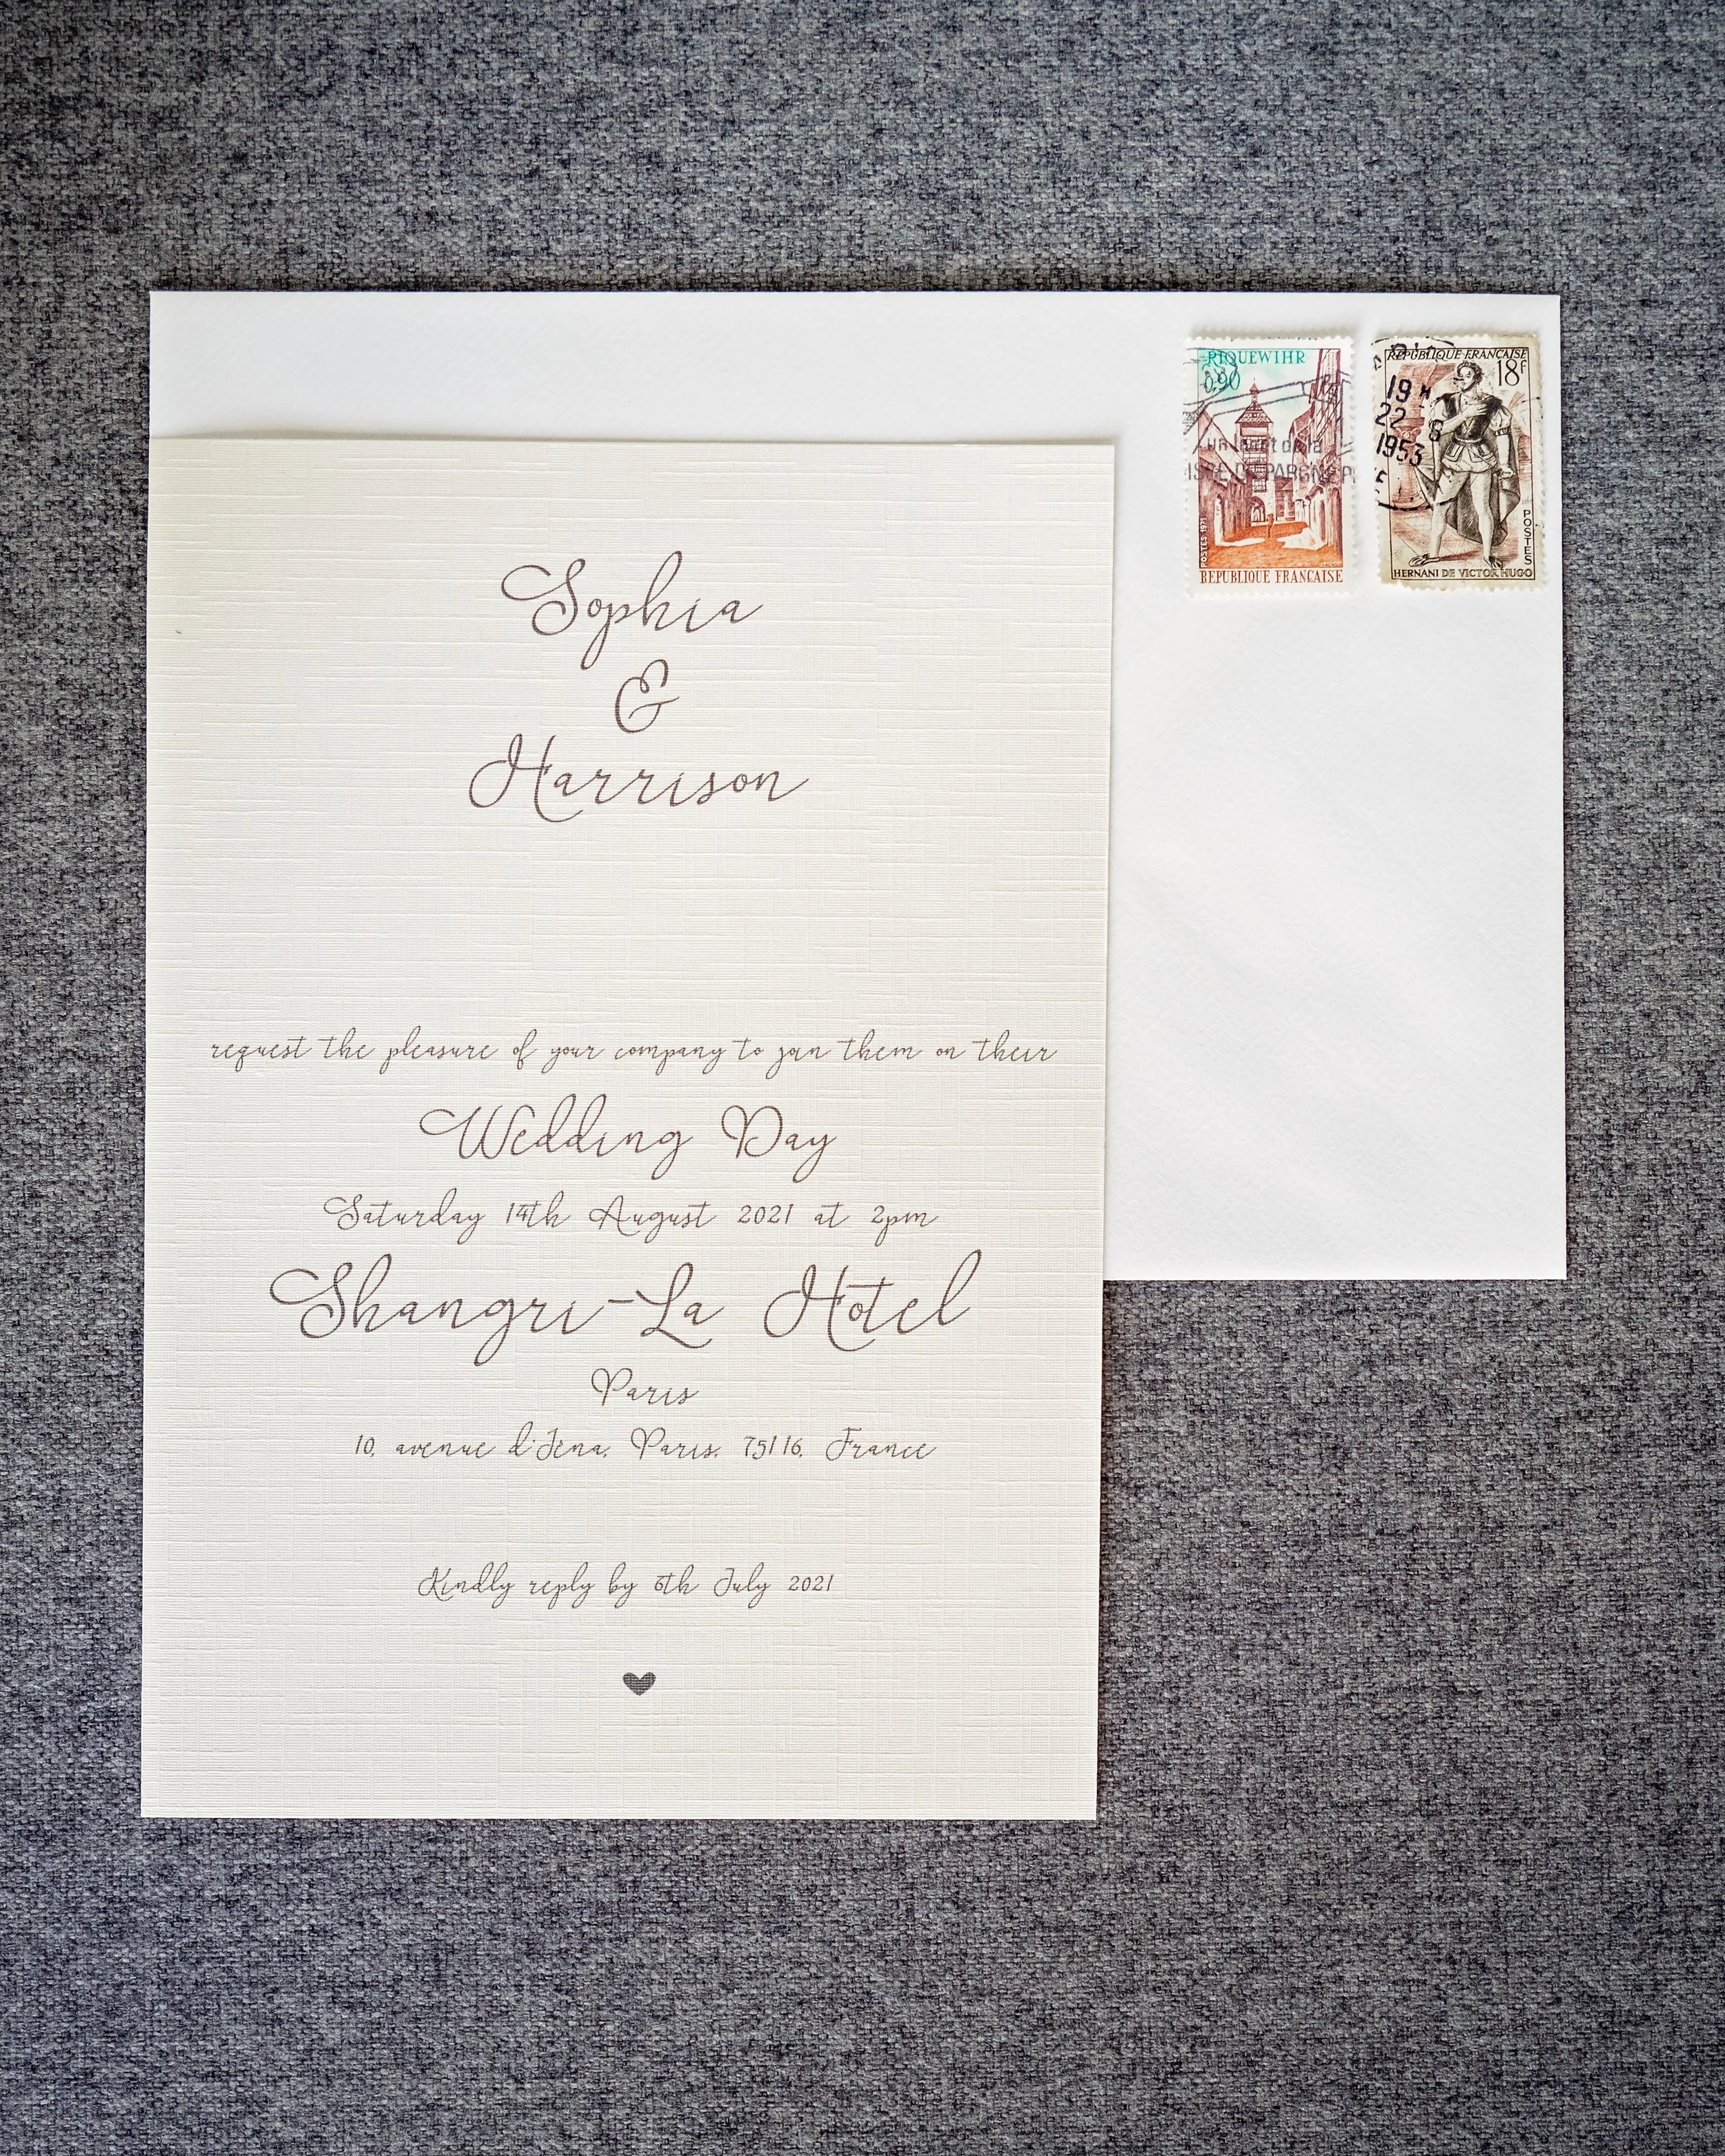 Sophia
&
Harrison
request the pleasure of your company to join them on their
Wedding Day
Saturday 14th August 2021 at 2pm
Shangri-La Hotel
Paris
10, avenue d'Iena, Paris, 75116, France
Kindly reply by 6th July 2021
RIQUEWIHR
0,90
de la
POSTES 1971
REPUBLIQUE FRANÇAISE
REPUBLIQUE FRANÇAISE
18F
19 H
22 8
1953
POSTES
HERNANI DE VICTOR HUGO